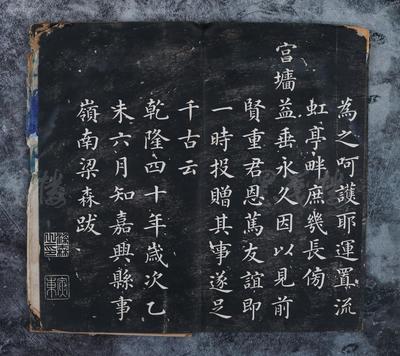 為之呵護耶運置流
虹亭畔庶幾長傍
宮墻益垂永久因以見前
賢重君恩篤友誼即
一時投贈其事遂足
千古云
乾隆四十年歲次乙
未六月知嘉興縣事
嶺南梁森跋